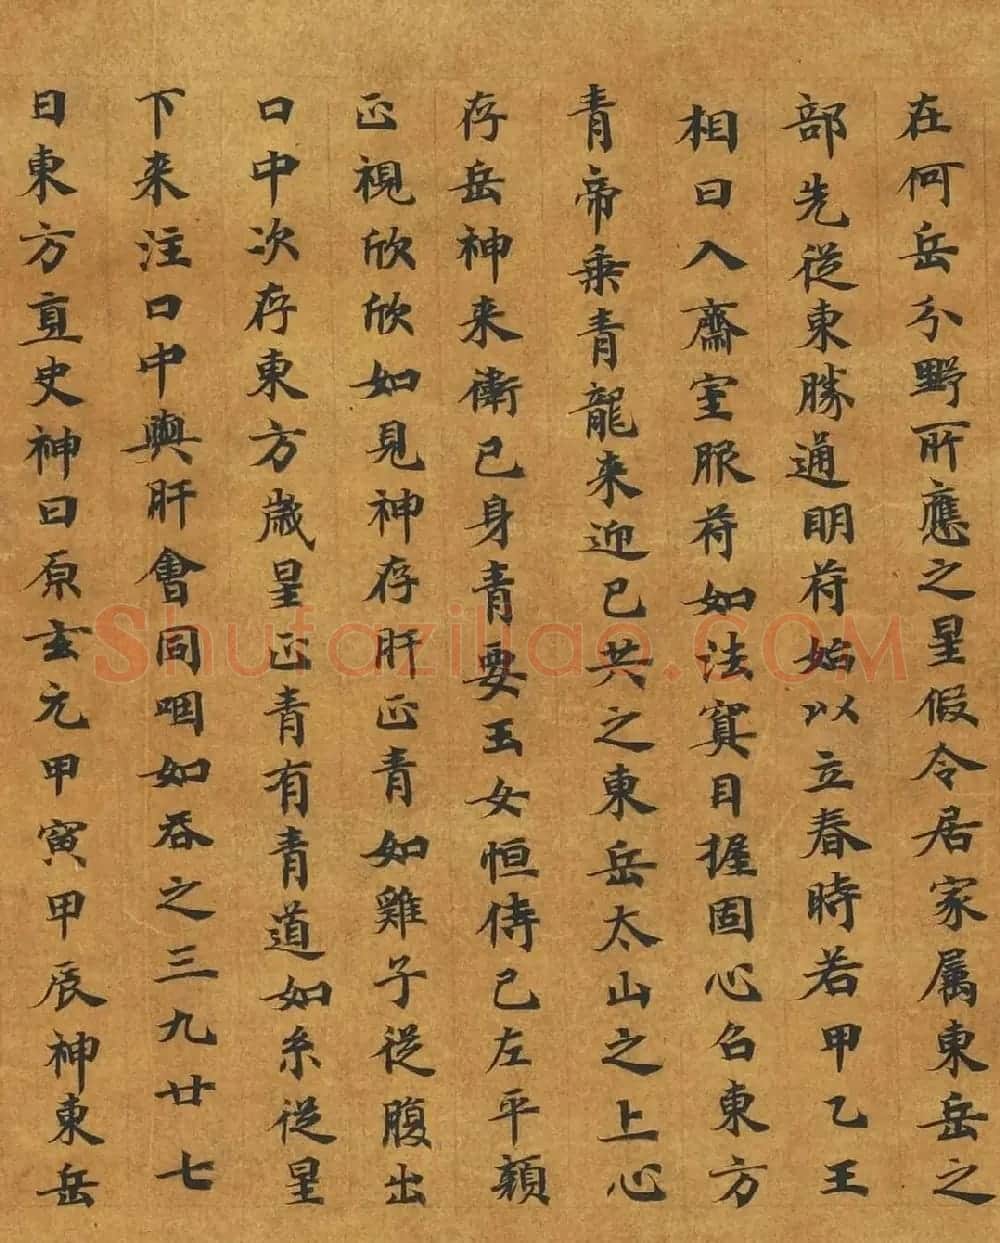 在何岳分野所應之星假令居家属東岳之
部先從東勝通明苻始以立春時若甲乙王
相日入齋室服苻如法冥目握固心召東方
青帝乗青龍来迎已共之東岳太山之上心
存岳神来衛已身青要玉女恒侍已左平顔
正視欣欣如見神存肝正青如雞子從腹出
口中次存東方歲星正青有青道如糸從星
下来注口中與肝會同咽如吞之三九廿七
日東方直史神曰原玄元甲寅甲辰神東岳
Shufaziliao.COM